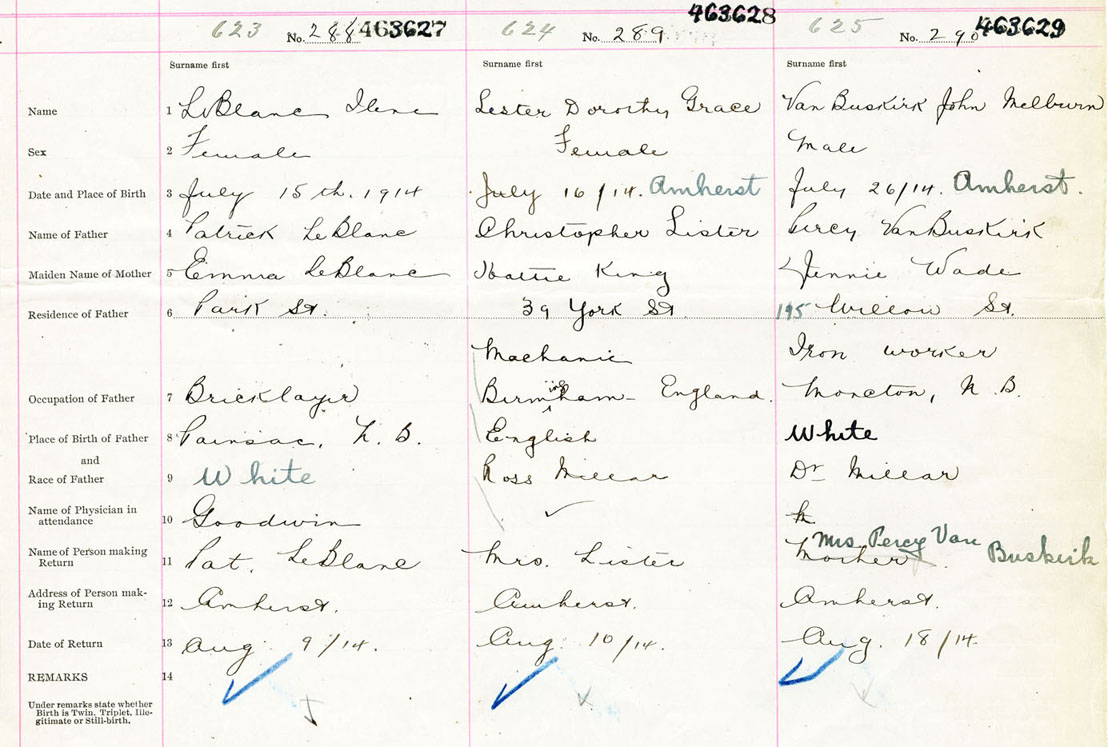 623 No. 288 463627 624 No. 289 463628 625 No. 290 463629
Surname first Surname first Surname first
Name 1 LeBlanc Ilene Lester Dorothy Grace VanBuskirk John Melburn
Sex 2 Female Female Male
Date and Place of Birth 3 July 15th. 1914 July 16/14. Amherst July 26/14. Amherst.
Name of Father 4 Patrick LeBlanc Christopher Lister Percy VanBuskirk
Maiden Name of Mother 5 Emma LeBlanc Hattie King Jennie Wade
Residence of Father 6 Park St. 39 York St 195 Willow St.
Machanic Iron worker
Occupation of Father 7 Bricklayer Birmingham - England. Moncton, N.B.
Place of Birth of Father 8 Painsac, N.B. English White
and
Race of Father 9 White Ross Millar Dr Millar
Name of Physician in
attendance 10 Goodwin
Name of Person making
Return 11 Pat. LeBlanc Mrs. Lister Mother Mrs Percy Van Buskirk
Address of Person mak-
ing Return 12 Amherst. Amherst. Amherst.
Date of Return 13 Aug. 9/14. Aug. 10/14. Aug. 18/14.
REMARKS 14
Under remarks state whether
Birth is Twin, Triplet, Ille-
gitimate or Still-birth.